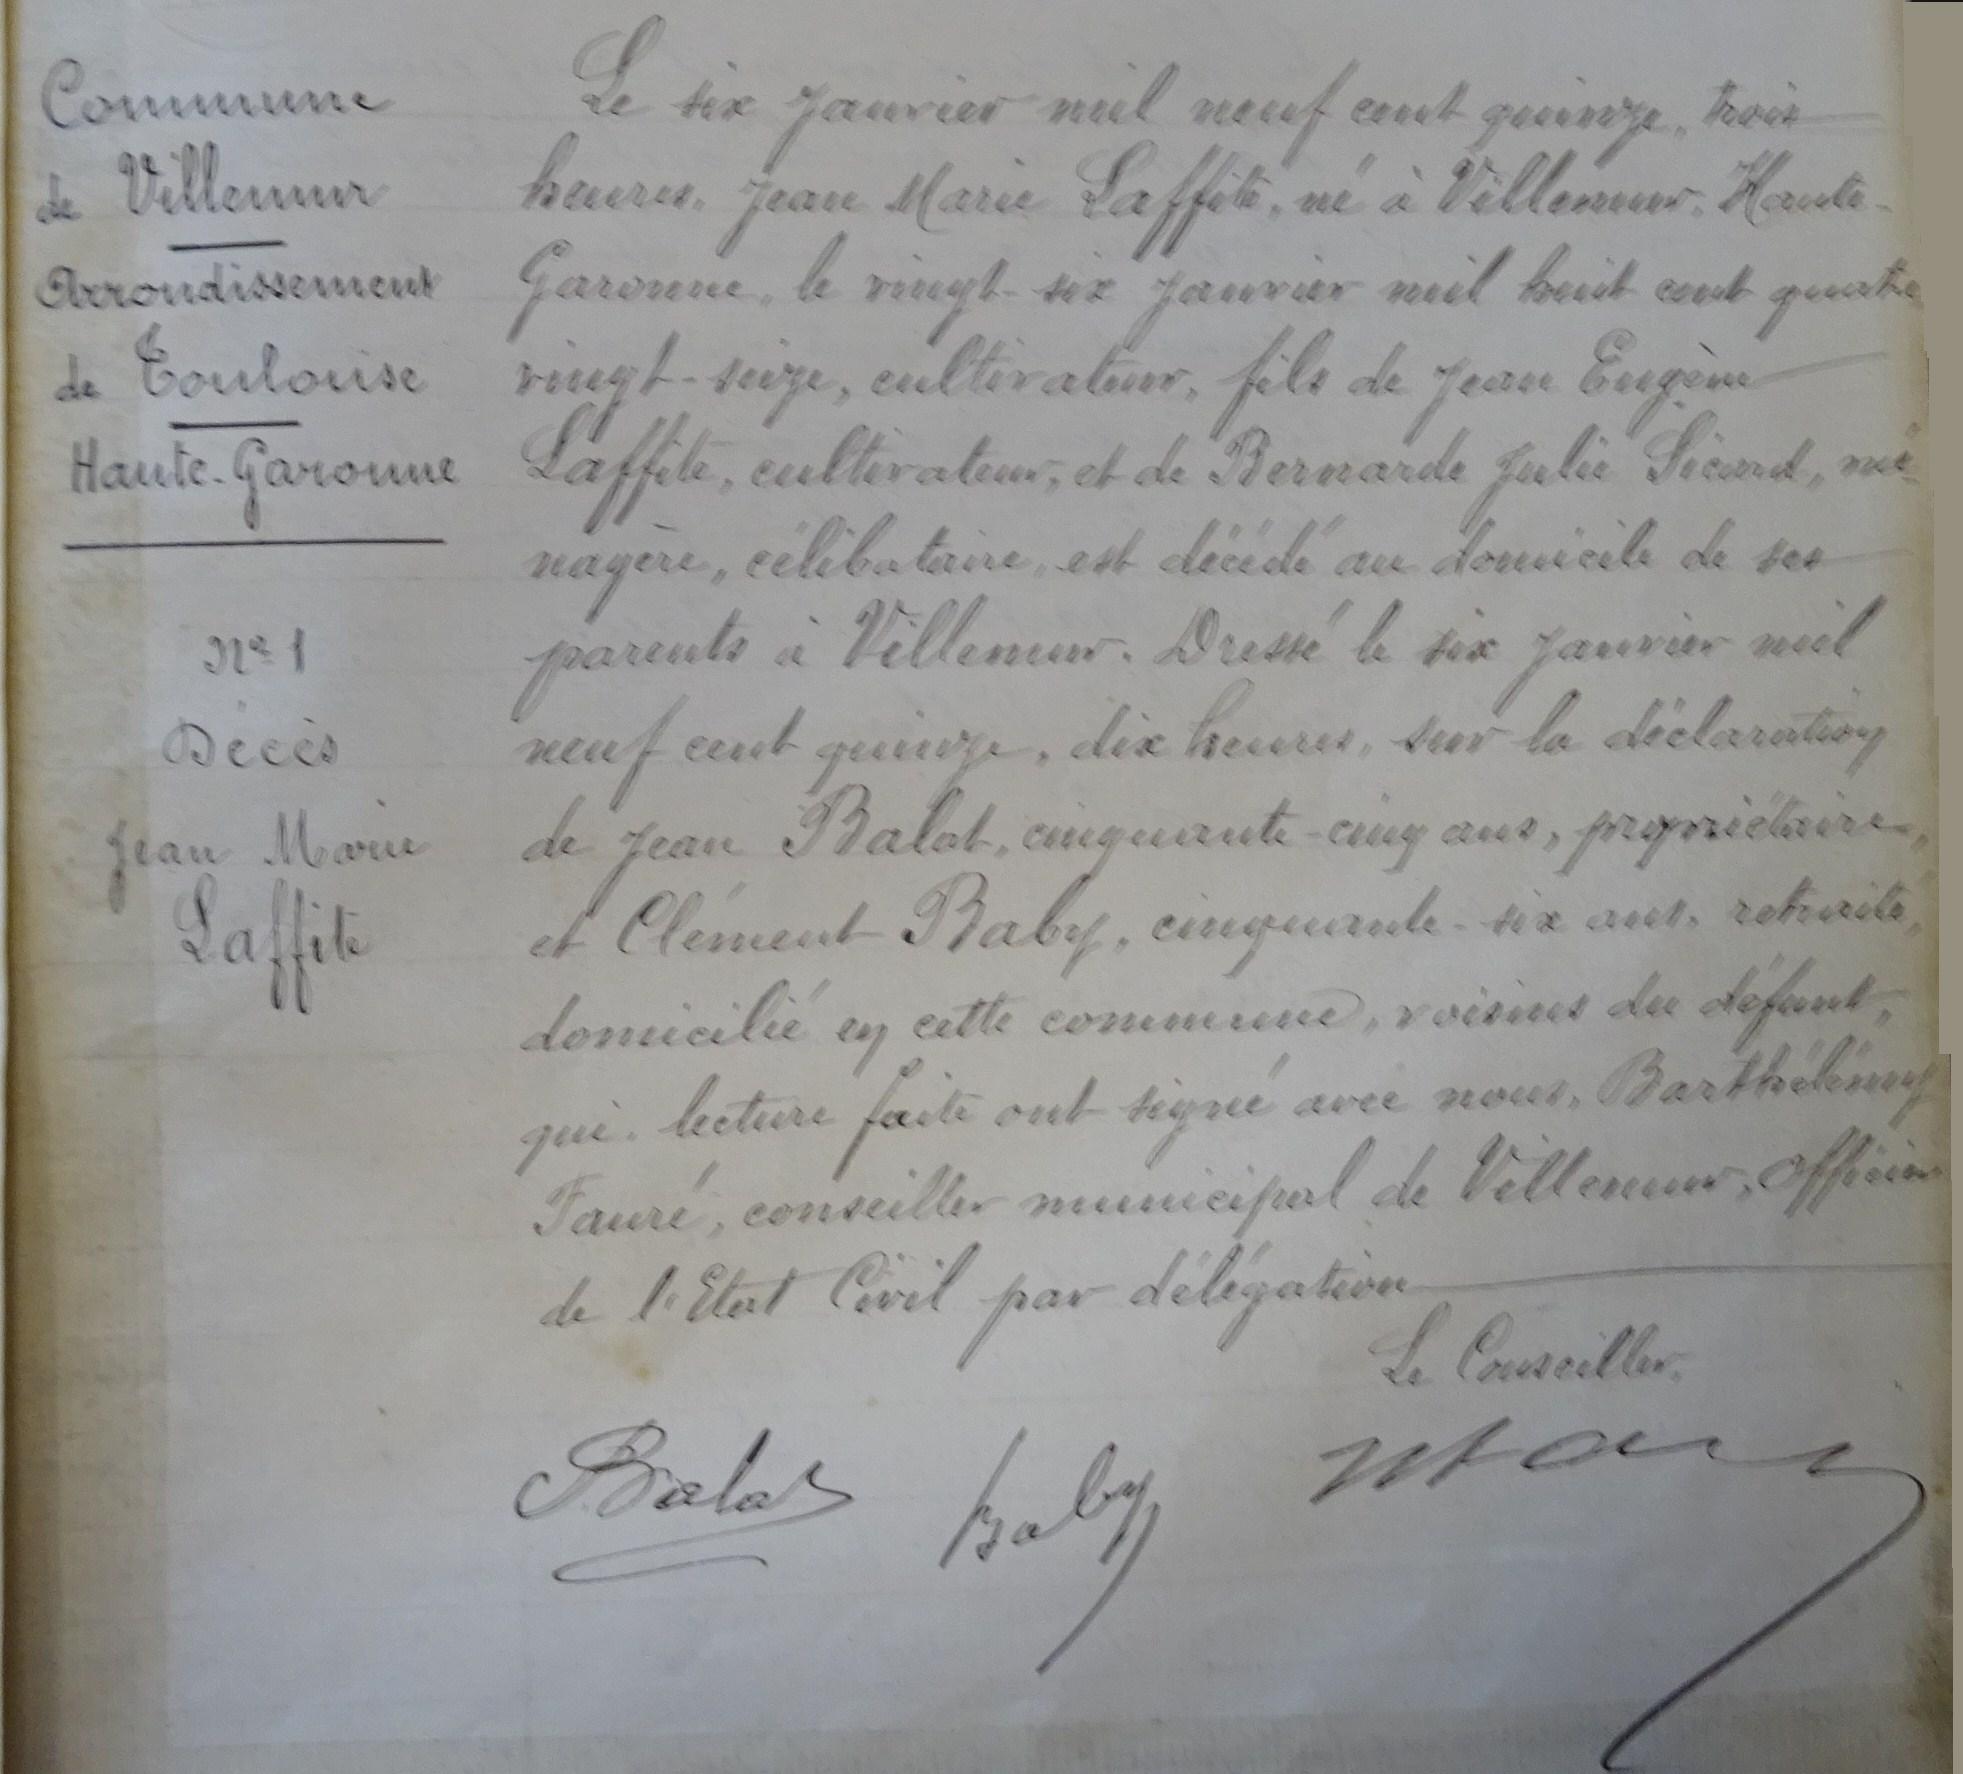 Commune
de Villemur
Arrondissement
de Toulouse
Haute-Garonne
Nº 1
Décès
Jean Marie
Laffite
Le six Janvier mil neuf cent quinze, trois
heures, Jean Marie Laffite, né à Villemur, Haute-
Garonne, le vingt-six Janvier mil huit cent quatre
vingt-seize, cultivateur, fils de Jean Eugène
Laffite, cultivateur, et de Bernarde Julie Sicard, mé-
nagère, célibataire, est décédé au domicile de ses
parents à Villemur. Dressé le six Janvier mil
neuf cent quinze, dix heures, sur la déclaration
de Jean Balat, cinquante-cinq ans, propriétaire,
et Clément Baby, cinquante-six ans, retraité,
domicilié en cette commune, voisins du défunt,
qui, lecture faite ont signé avec nous, Barthélémy
Fauré, conseiller municipal de Villemur, Officier
de l'Etat Civil par délégation
Le Conseiller,
Balat Baby